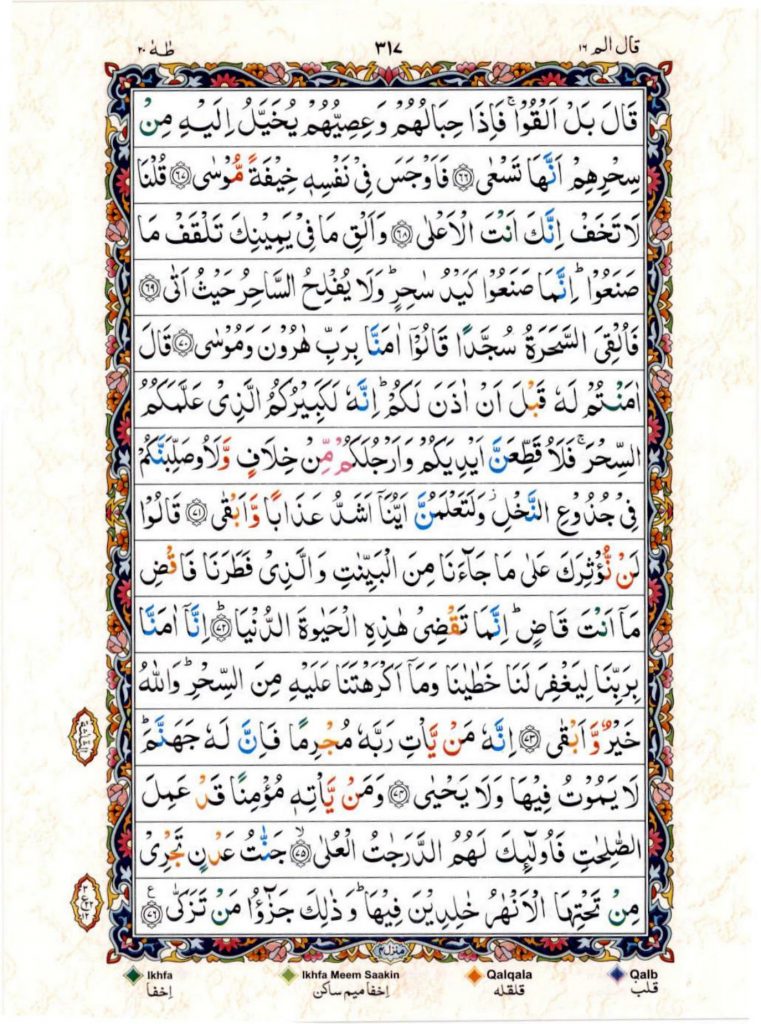 قال الم ١٦
٣١٧
طٰهٰ ٢٠
قَالَ بَلْ اَلْقُوْا ۚ فَاِذَا حِبَالُهُمْ وَعِصِيُّهُمْ يُخَيَّلُ اِلَيْهِ مِنْ
سِحْرِهِمْ اَنَّهَا تَسْعٰى ﴿٦٦﴾ فَاَوْجَسَ فِيْ نَفْسِهٖ خِيْفَةً مُّوْسٰى ﴿٦٧﴾ قُلْنَا
لَا تَخَفْ اِنَّكَ اَنْتَ الْاَعْلٰى ﴿٦٨﴾ وَاَلْقِ مَا فِيْ يَمِيْنِكَ تَلْقَفْ مَا
صَنَعُوْا ؕ اِنَّمَا صَنَعُوْا كَيْدُ سٰحِرٍ ؕ وَلَا يُفْلِحُ السَّاحِرُ حَيْثُ اَتٰى ﴿٦٩﴾
فَاُلْقِيَ السَّحَرَةُ سُجَّدًا قَالُوْٓا اٰمَنَّا بِرَبِّ هٰرُوْنَ وَمُوْسٰى ﴿٧٠﴾ قَالَ
اٰمَنْتُمْ لَهٗ قَبْلَ اَنْ اٰذَنَ لَكُمْ ؕ اِنَّهٗ لَكَبِيْرُكُمُ الَّذِيْ عَلَّمَكُمُ
السِّحْرَ ۚ فَلَاُ قَطِّعَنَّ اَيْدِيَكُمْ وَاَرْجُلَكُمْ مِّنْ خِلَافٍ وَّلَاُوصَلِّبَنَّكُمْ
فِيْ جُذُوْعِ النَّخْلِ ؗ وَلَتَعْلَمُنَّ اَيُّنَاۤ اَشَدُّ عَذَابًا وَّاَبْقٰى ﴿٧١﴾ قَالُوْا
لَنْ نُّؤْثِرَكَ عَلٰى مَا جَآءَنَا مِنَ الْبَيِّنٰتِ وَالَّذِيْ فَطَرَنَا فَاقْضِ
مَاۤ اَنْتَ قَاضٍ ؕ اِنَّمَا تَقْضِيْ هٰذِهِ الْحَيٰوةَ الدُّنْيَا ؕ ﴿٧٢﴾ اِنَّاۤ اٰمَنَّا
بِرَبِّنَا لِيَغْفِرَ لَنَا خَطٰيٰنَا وَمَاۤ اَكْرَهْتَنَا عَلَيْهِ مِنَ السِّحْرِ ؕ وَاللّٰهُ
خَيْرٌ وَّاَبْقٰى ﴿٧٣﴾ اِنَّهٗ مَنْ يَّاْتِ رَبَّهٗ مُجْرِمًا فَاِنَّ لَهٗ جَهَنَّمَ ؕ
لَا يَمُوْتُ فِيْهَا وَلَا يَحْيٰى ﴿٧٤﴾ وَمَنْ يَّاْتِهٖ مُؤْمِنًا قَدْ عَمِلَ
الصّٰلِحٰتِ فَاُولٰٓئِكَ لَهُمُ الدَّرَجٰتُ الْعُلٰى ۙ ﴿٧٥﴾ جَنّٰتُ عَدْنٍ تَجْرِيْ
مِنْ تَحْتِهَا الْاَنْهٰرُ خٰلِدِيْنَ فِيْهَا ؕ وَذٰلِكَ جَزٰٓؤُا مَنْ تَزَكّٰى ﴿٧٦﴾ ع
منزل ٤
Ikhfa
اِخفا
Ikhfa Meem Saakin
اِخفا ميم ساكن
Qalqala
قلقله
Qalb
قلب